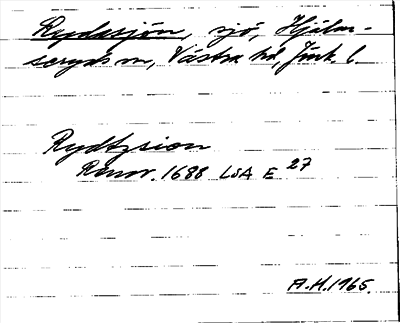 Rydasjön, sjö, Hjälm-
seryds sn, Västra hd, Jönk. l.
Rydtzsion
Renov. 1688 LSA E 27
A.H. 1965.